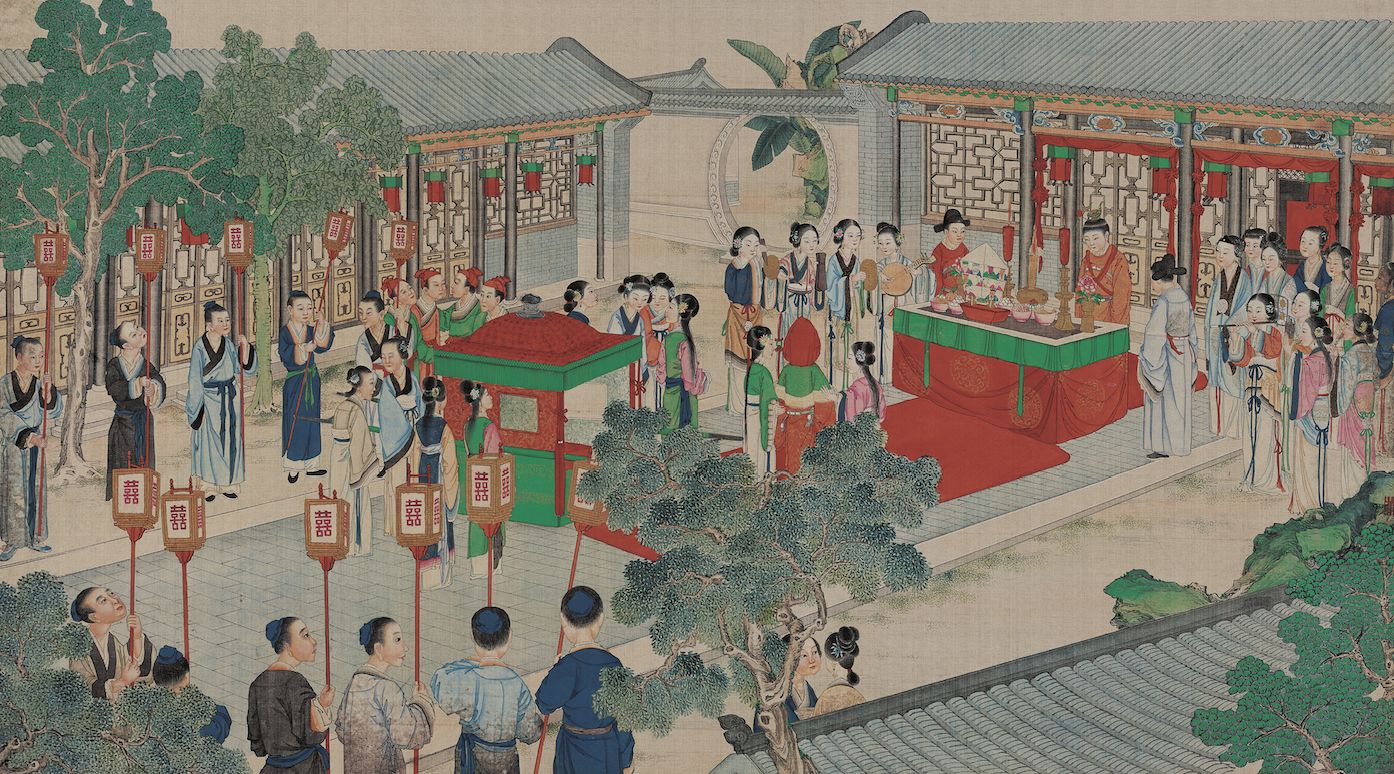 囍
囍
囍
囍
囍
囍
囍
囍
囍
囍